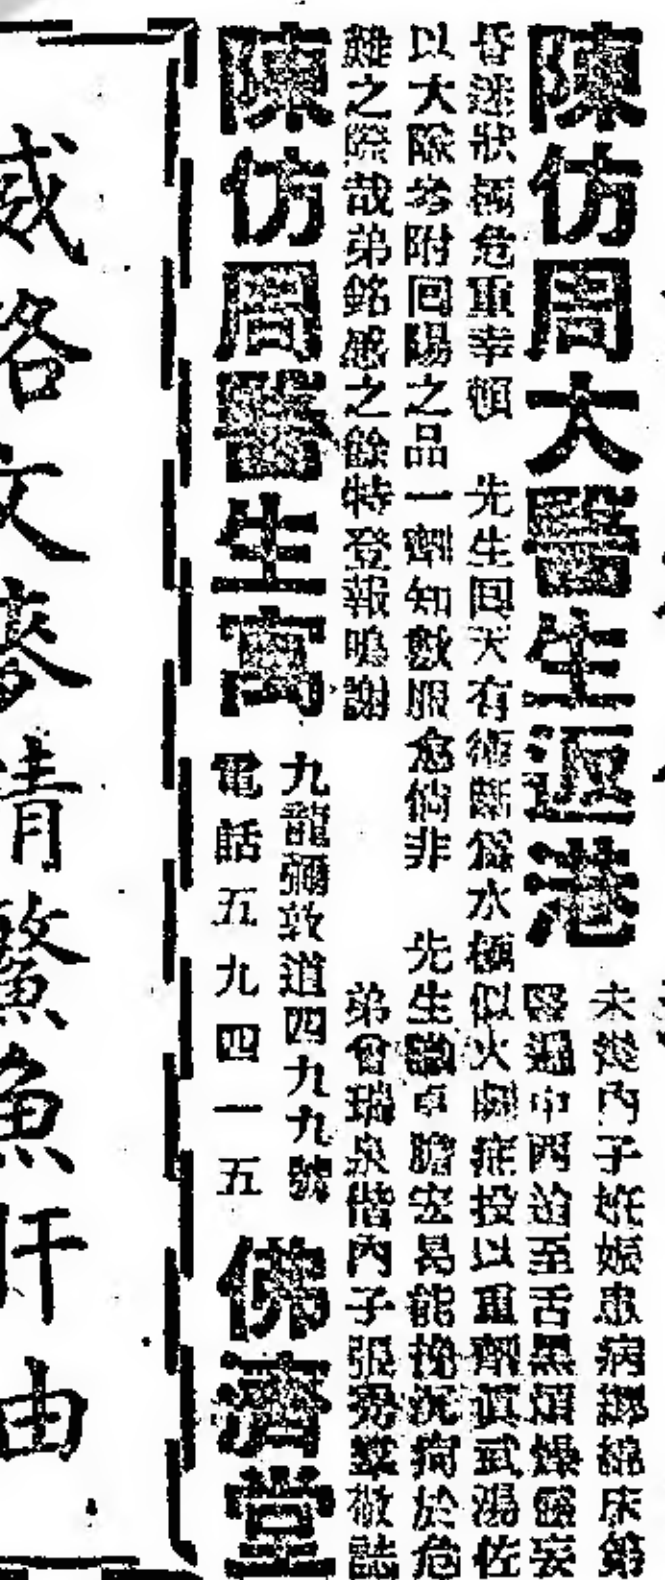 陳仿周大醫生返港
未幾內子妊娠患病纏綿床第
醫遍中西迨至舌黑煩燥譫妄
昏迷狀極危重幸賴　先生回天有術斷為水極似火劇症投以重劑真武湯佐
以大隊參附回陽之品一劑知數服愈倘非　先生識卓膽宏曷能挽沉痾於危
難之際哉弟銘感之餘特登報鳴謝　弟曾瑞泉偕內子張羣敬誌
陳仿周醫生寓
九龍彌敦道四九九號
電話五九四一五
佛濟堂
威文麥清鰵魚肝油